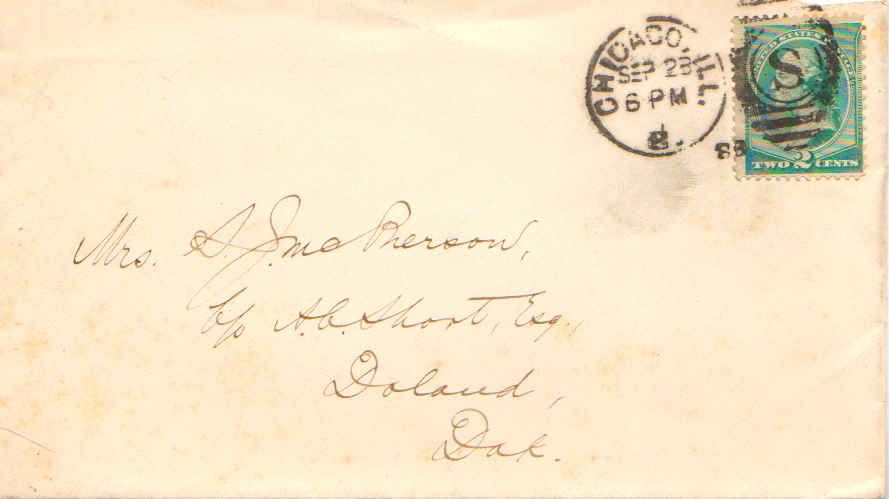 CHICAGO, ILL.
SEP 28
6 PM
88
S
UNITED STATES POSTAGE
TWO 2 CENTS
Mrs. S. J. McPherson,
c/o A. C. Short, Esq.,
Doland,
Dak.